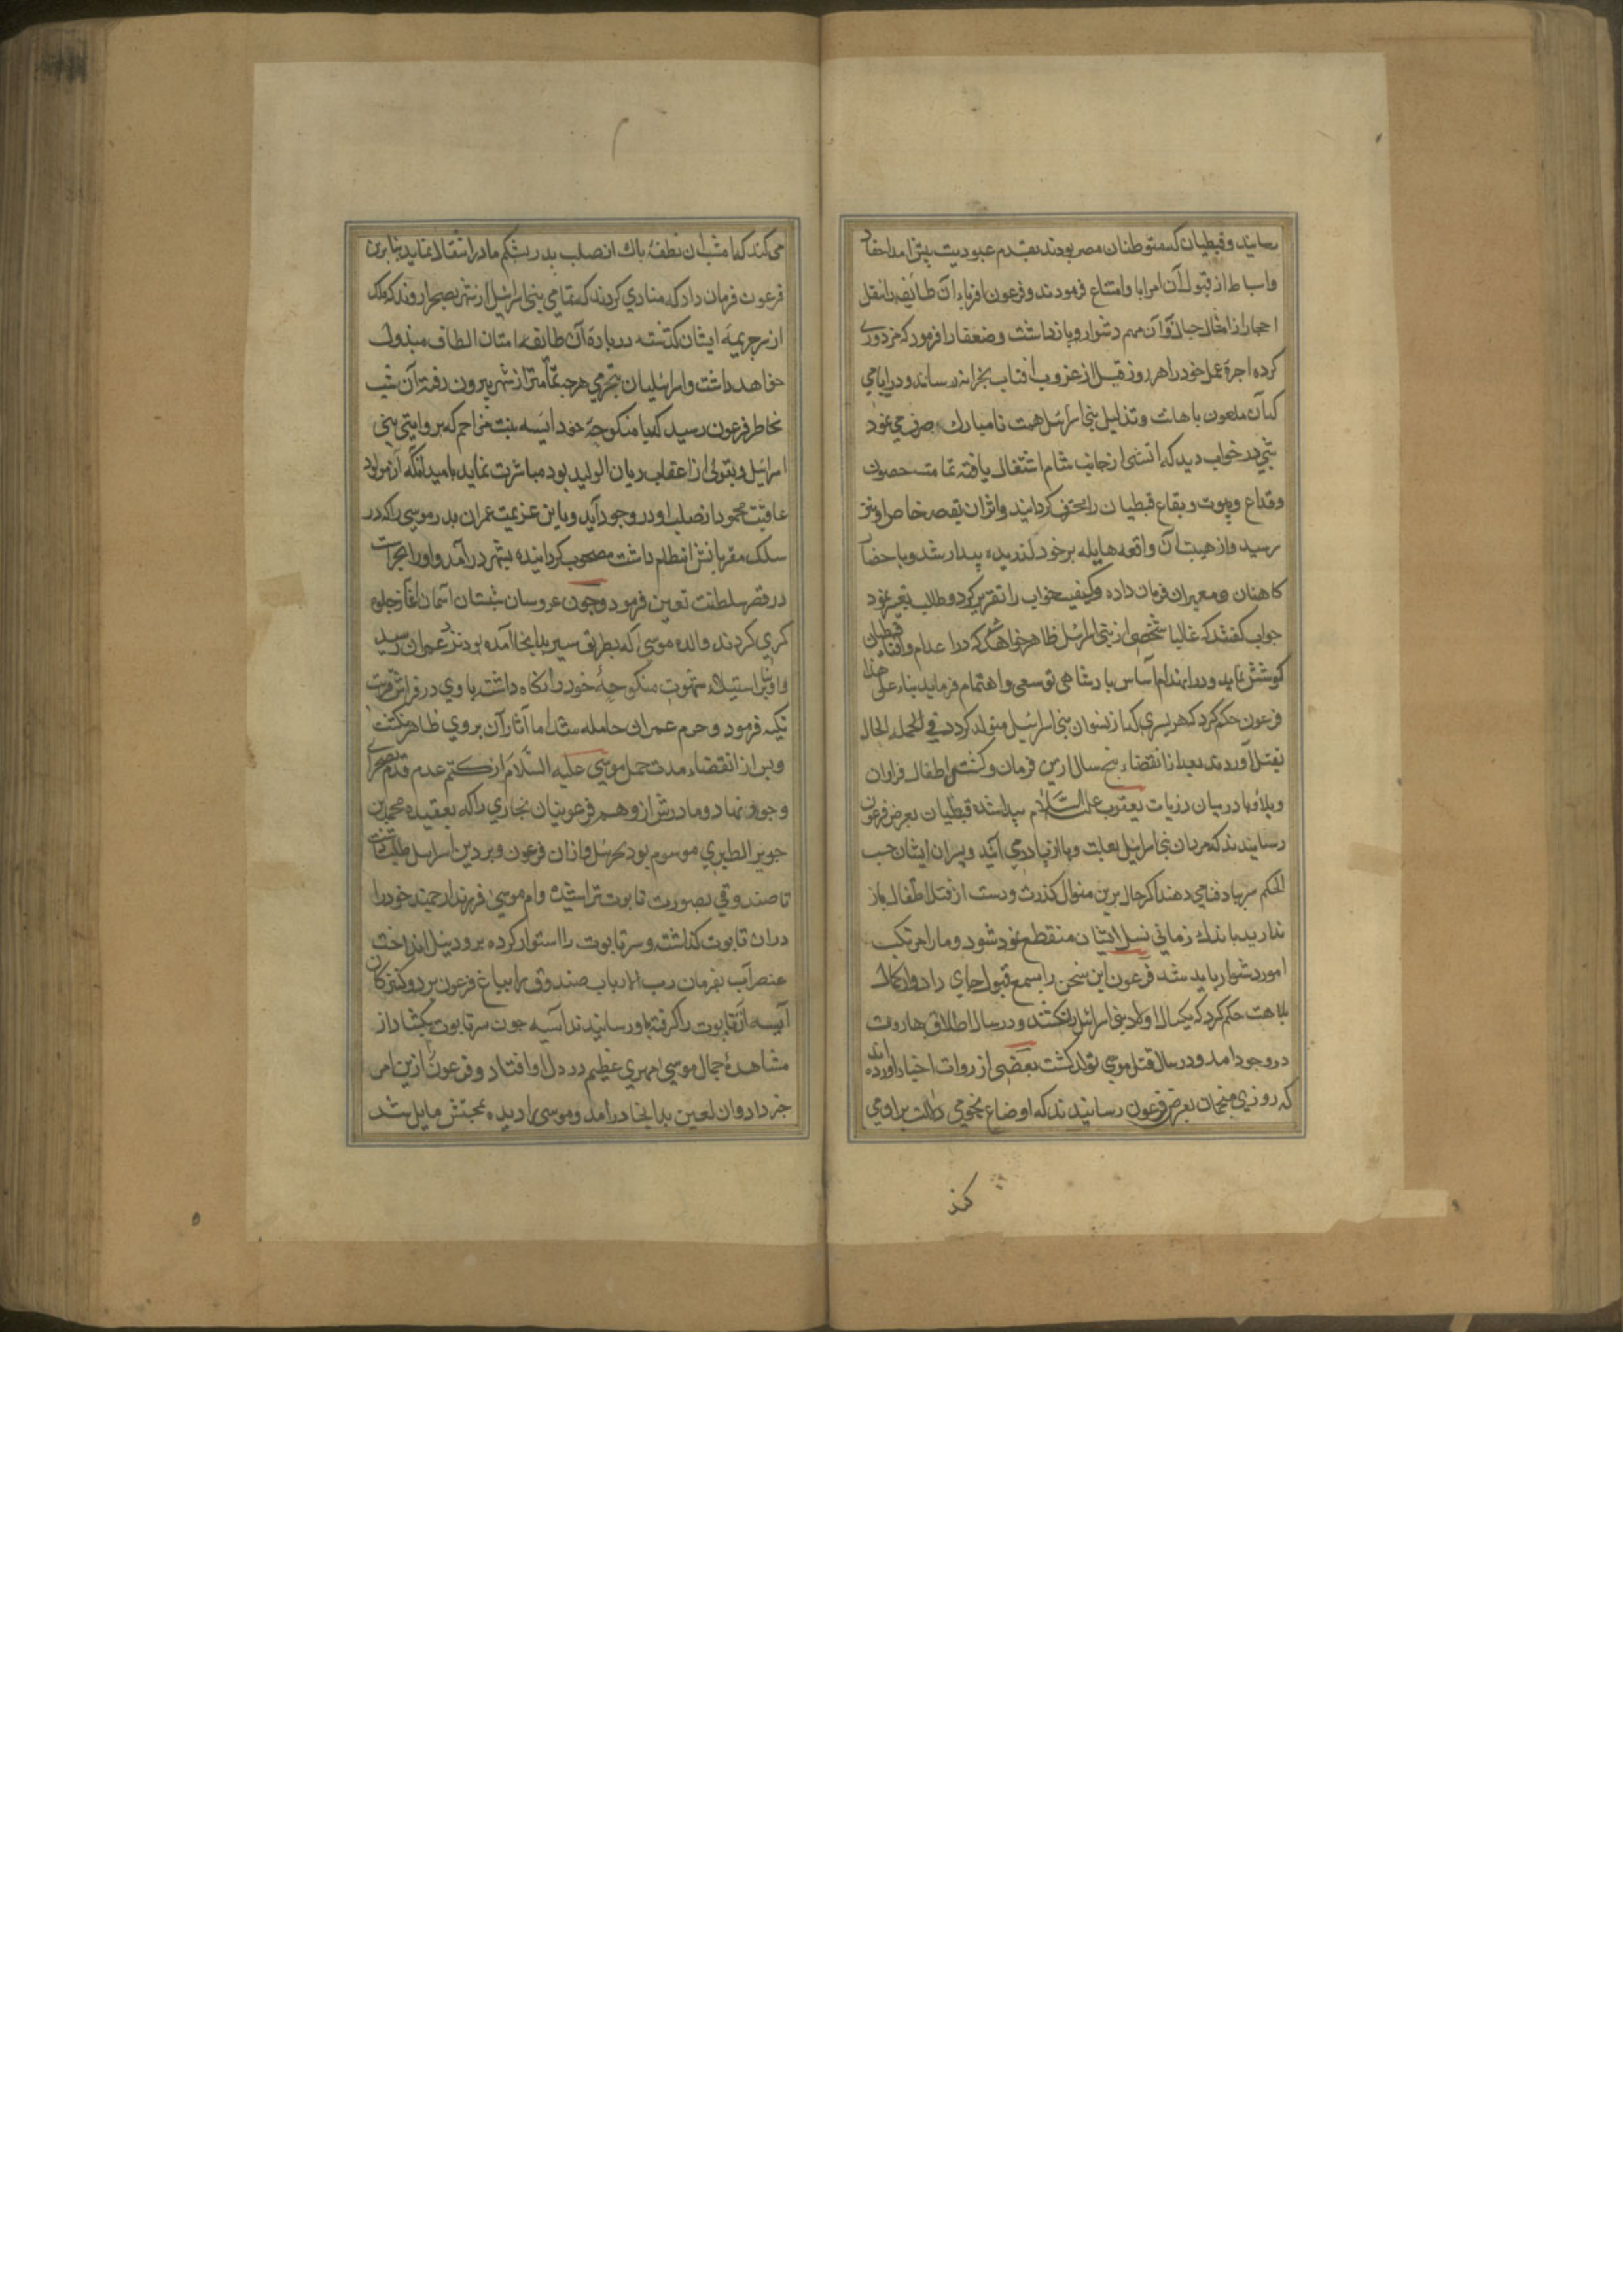 رسانید و قبطیان که متوطنان مصر بودند بقدم عبودیت پیش امد احفاد
واسباط از قبول آن امر ابا و امتناع فرمودند و فرعون اقرباء ان طایفه را بنقل
احجار از امثال جبال و آن مهم دشوار و باز داشت و ضعفا را فرمود که مزدوری
کرده اجرة عمل خود را هر روز قبل از غروب افتاب بخزانه رساند و در ایامی
که آن ملعون باهانت و تذلیل بنی اسرائیل همت نامبارک صرف می نمود
شبی در خواب دید که اتشی از جانب شام اشتغال یافته تمامت حصون
وقلاع و بیوت و بقاع قبطیان را محترق گردانید و اثر ان بقصر خاص او نیز
رسید و از هیبت آن واقعه هایله بر خود لرزیده بیدار شد و باحضار
کاهنان و معبران فرمان داده و کیفیت خواب را تقریر کرد و طالب تعبیر نمود
جواب گفتند که غالبا شخصی از بنی اسرائیل ظاهر خواهد شد که در اعدام و افناء قبطیان
کوشش نماید و در انهدام آساس پادشاهی تو سعی و اهتمام فرماید بناء علی هذا
فرعون حکم کرد که هر پسری که از نسوان بنی اسرائیل متولد کردد فی الجمله الحال
بقتل آوردند بعد از انقضاء پنج سال ازین فرمان و کشتن اطفال فراوان
وبلا و وبا در میان ذریات یعقوب علیه السلام پیدا شده قبطیان بعرض فرعون
رسانیدند که مردان بنی اسرائیل بعلت وبا از پا در می آیند و پسران ایشان حسب
الحکم سر بباد فنا می دهند اگر حال برین منوال گذرد و دست از قتل اطفال باز
ندارید باندک زمانی نسل ایشان منقطع شود و ما را مرتکب
امور دشوار باید شد فرعون این سخن را بسمع قبول جای داد و از کمال
بلاهت حکم کرد که یکسال اولاد بنی اسرائیل را نکشند و در سال اطلاق هارون
در وجود امد و در سال قتل موسی تولد کشت بعضی از روات اخبار آورده اند
که روزی منجمان بعرض فرعون رسانیدند که اوضاع نجومی دلالت بر او می
کند
می کند که امشب ان نطفهٔ پاک از صلب پدر بشکم مادر انتقال نماید بنابرین
فرعون فرمان داد که منادی کردند که تمامی بنی اسرائیل از شهر بصحرا روند که ملک
از سر جریمهٔ ایشان گذشته در بارهٔ آن طایفه امتنان الطاف مبذول
خواهد داشت و اسرائیلیان بخرمی هر چه تمامتر از شهر بیرون رفته آن شب
بخاطر فرعون رسید که با منکوحهٔ خود ایسه بنت مزاحم که بروایتی بنی
اسرائیل و بقولی از اعقاب ریان الولید بود مباشرت نماید بامید آنکه آن مولود
عاقبت محمود از صلب او در وجود آید و باین عزیمت عمران پدر موسی را که در
سلک مقربانش انتظام داشت مصحوب گردانیده بشهر درآمد و او را بحراست
در قصر سلطنت تعیین فرمود و چون عروسان شبستان آسمان آغاز جلوه
گری کردند والدهٔ موسی که بطریق سیر بدانجا آمده بودند نزد عمران رسید
و او بنا بر استیلاء شهوت منکوحهٔ خود را نکاه داشت با وی در فراش
تکیه فرمود و حرم عمران حامله شد اما آثار آن بر وی ظاهر نکشت
وپس از انقضاء مدت حمل موسی علیه السلام از کتم عدم قدم بصحرای
وجود نهاد و مادرش از وهم فرعونیان نجاری را که بعقیده محمد بن
جریر الطبری موسوم بود بحزبیل و از ان فرعون و بر دین اسرائیل طلب داشت
تا صندوقی بصورت تابوت تراشید و ام موسی فرزند ارجمند خود را
دران تابوت گذاشته و سر تابوت را استوار کرده برود نیل انداخت
عنصر آب بفرمان رب الارباب صندوق را بباغ فرعون برد و کنیزکان
آیسه آن تابوت را گرفته باو رسانیدند آسیه چون سر تابوت بکشاد از
مشاهدهٔ جمال موسی مهری عظیم در دل او افتاد و فرعون را ازین امر
خبر داد و ان لعین بدانجا درامد و موسی را دیده بمحبتش مایل شد